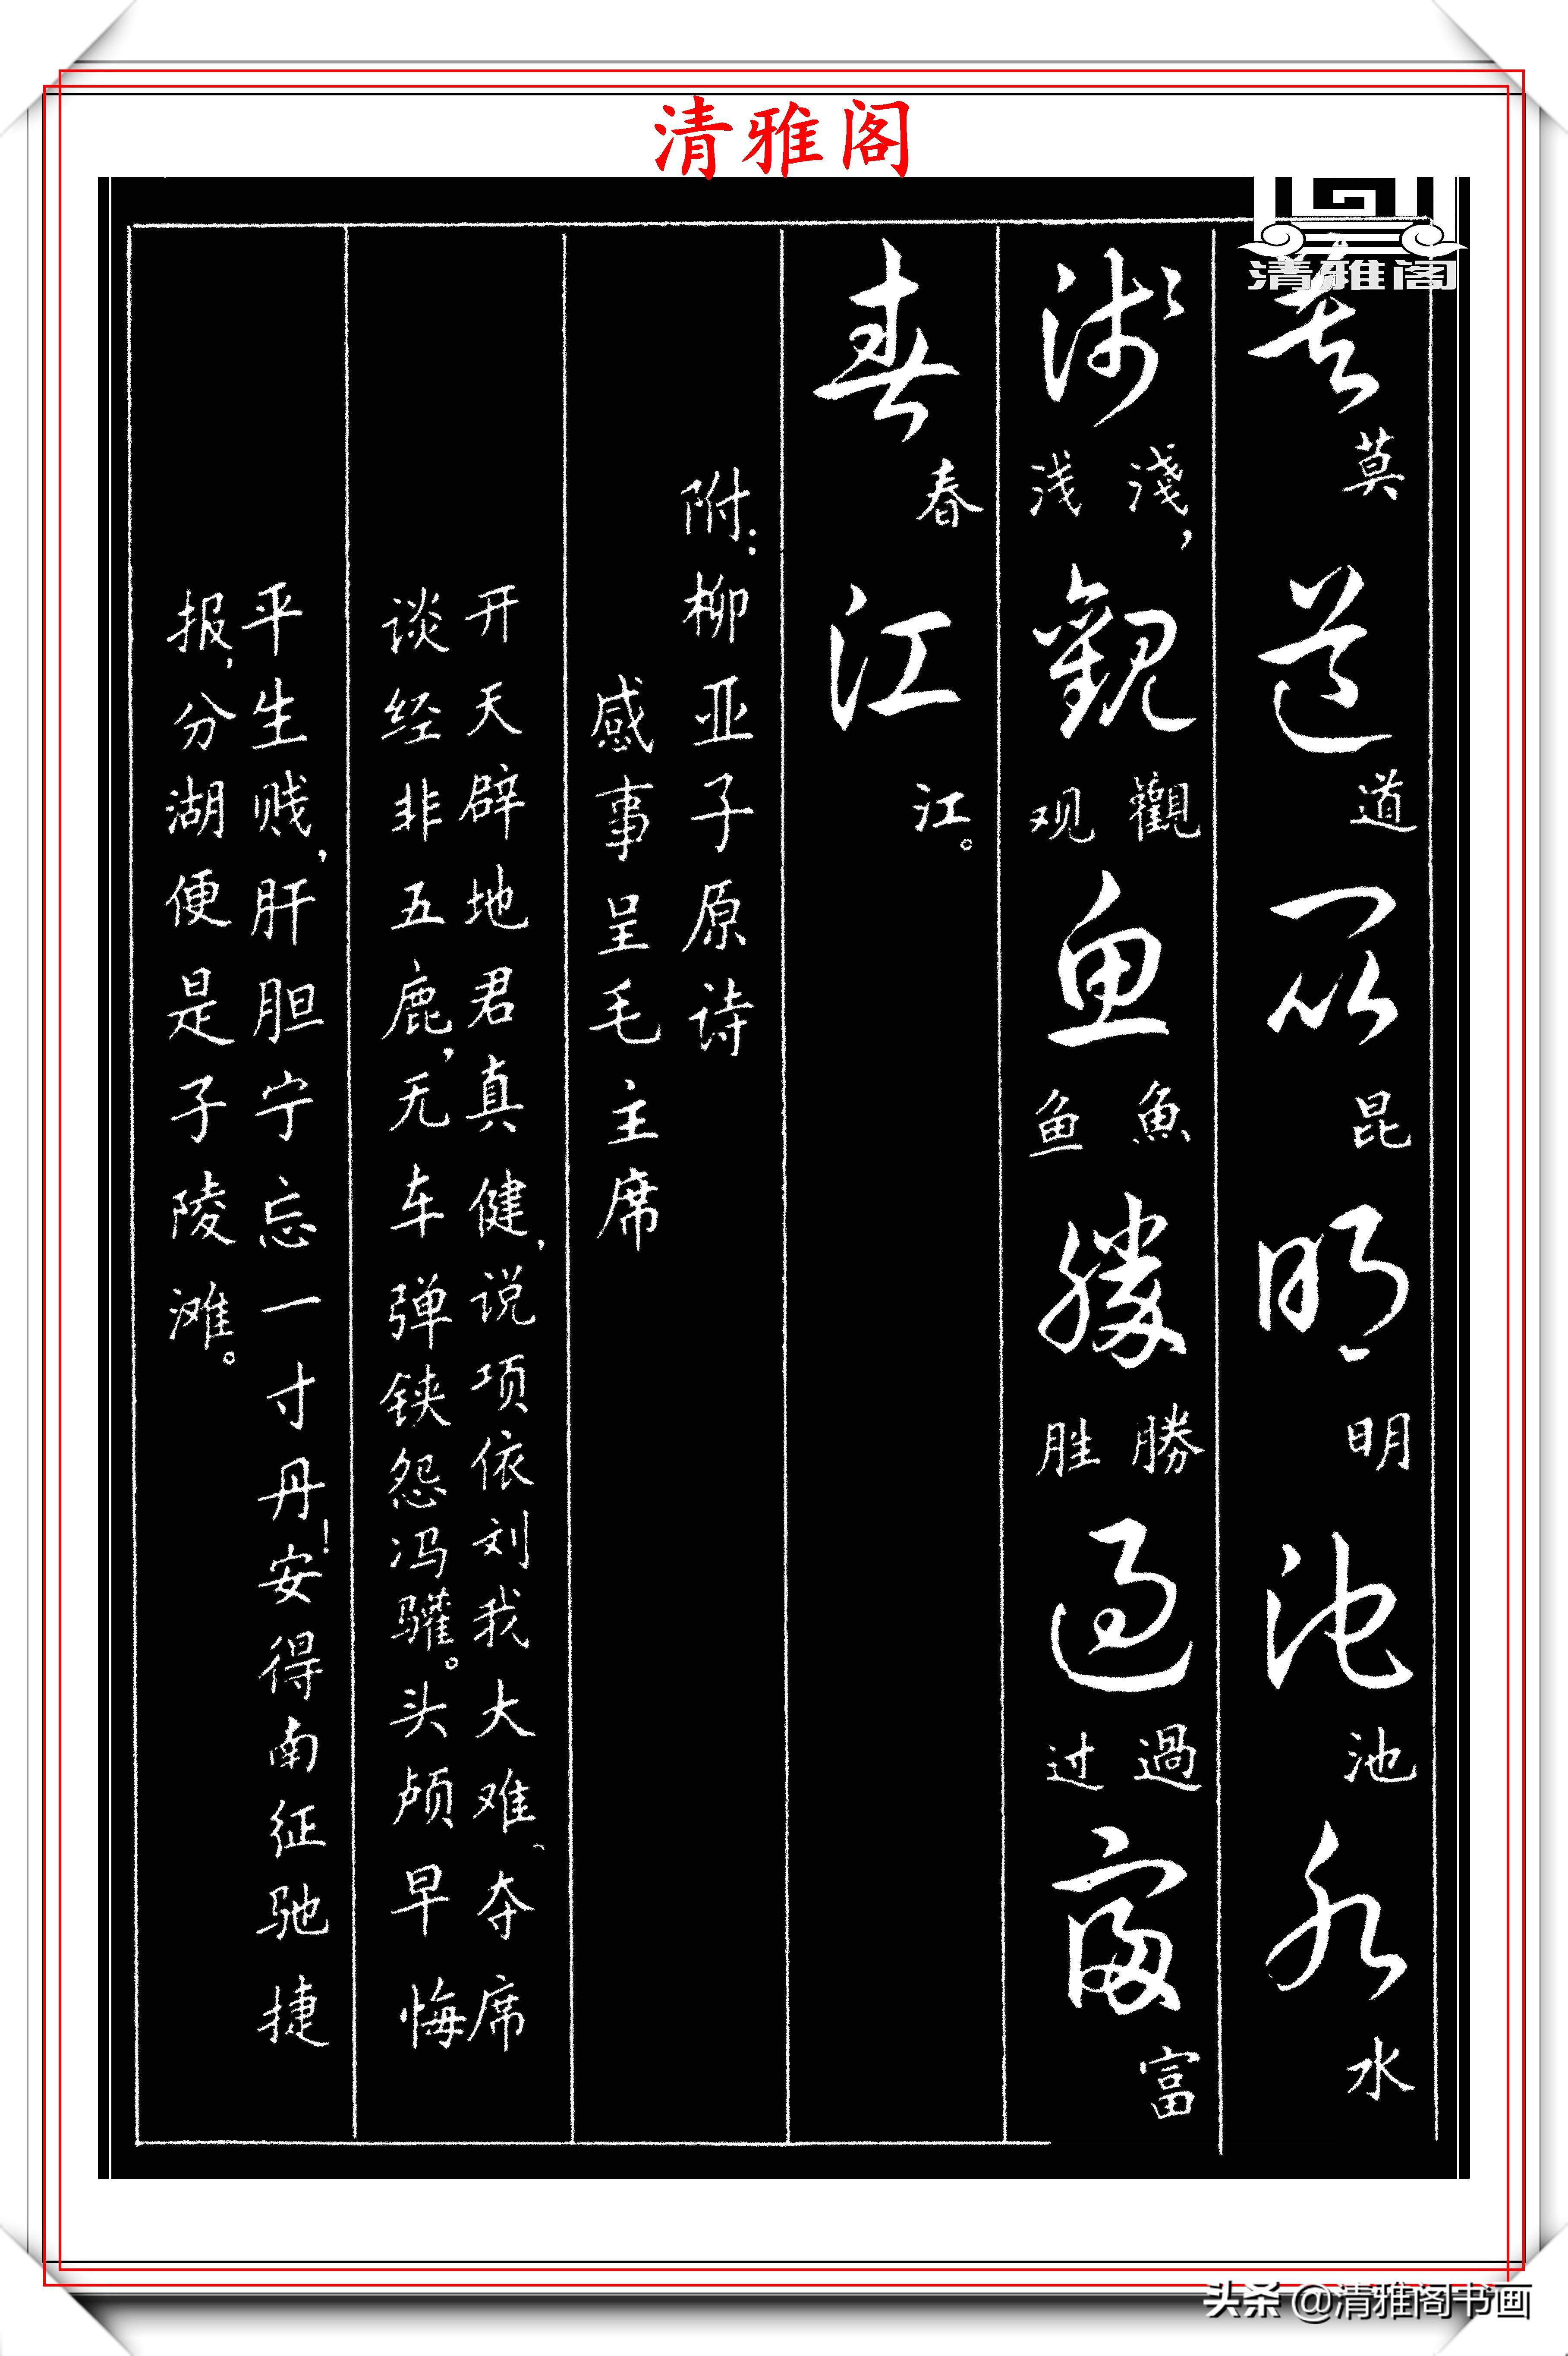 清雅阁
清雅阁
莫莫道道昆昆明明池池水水
浅淺，浅觀觀观鱼魚鱼勝勝胜過過过富富
春春江江。
附：柳亚子原诗
感事呈毛主席
开天辟地君真健，说项依刘我大难、夺席
谈经非五鹿，无车弹铗怨冯驩。头颅早悔
平生贱，肝胆宁忘一寸丹！安得南征驰捷
报，分湖便是子陵滩。
头条 @清雅阁书画